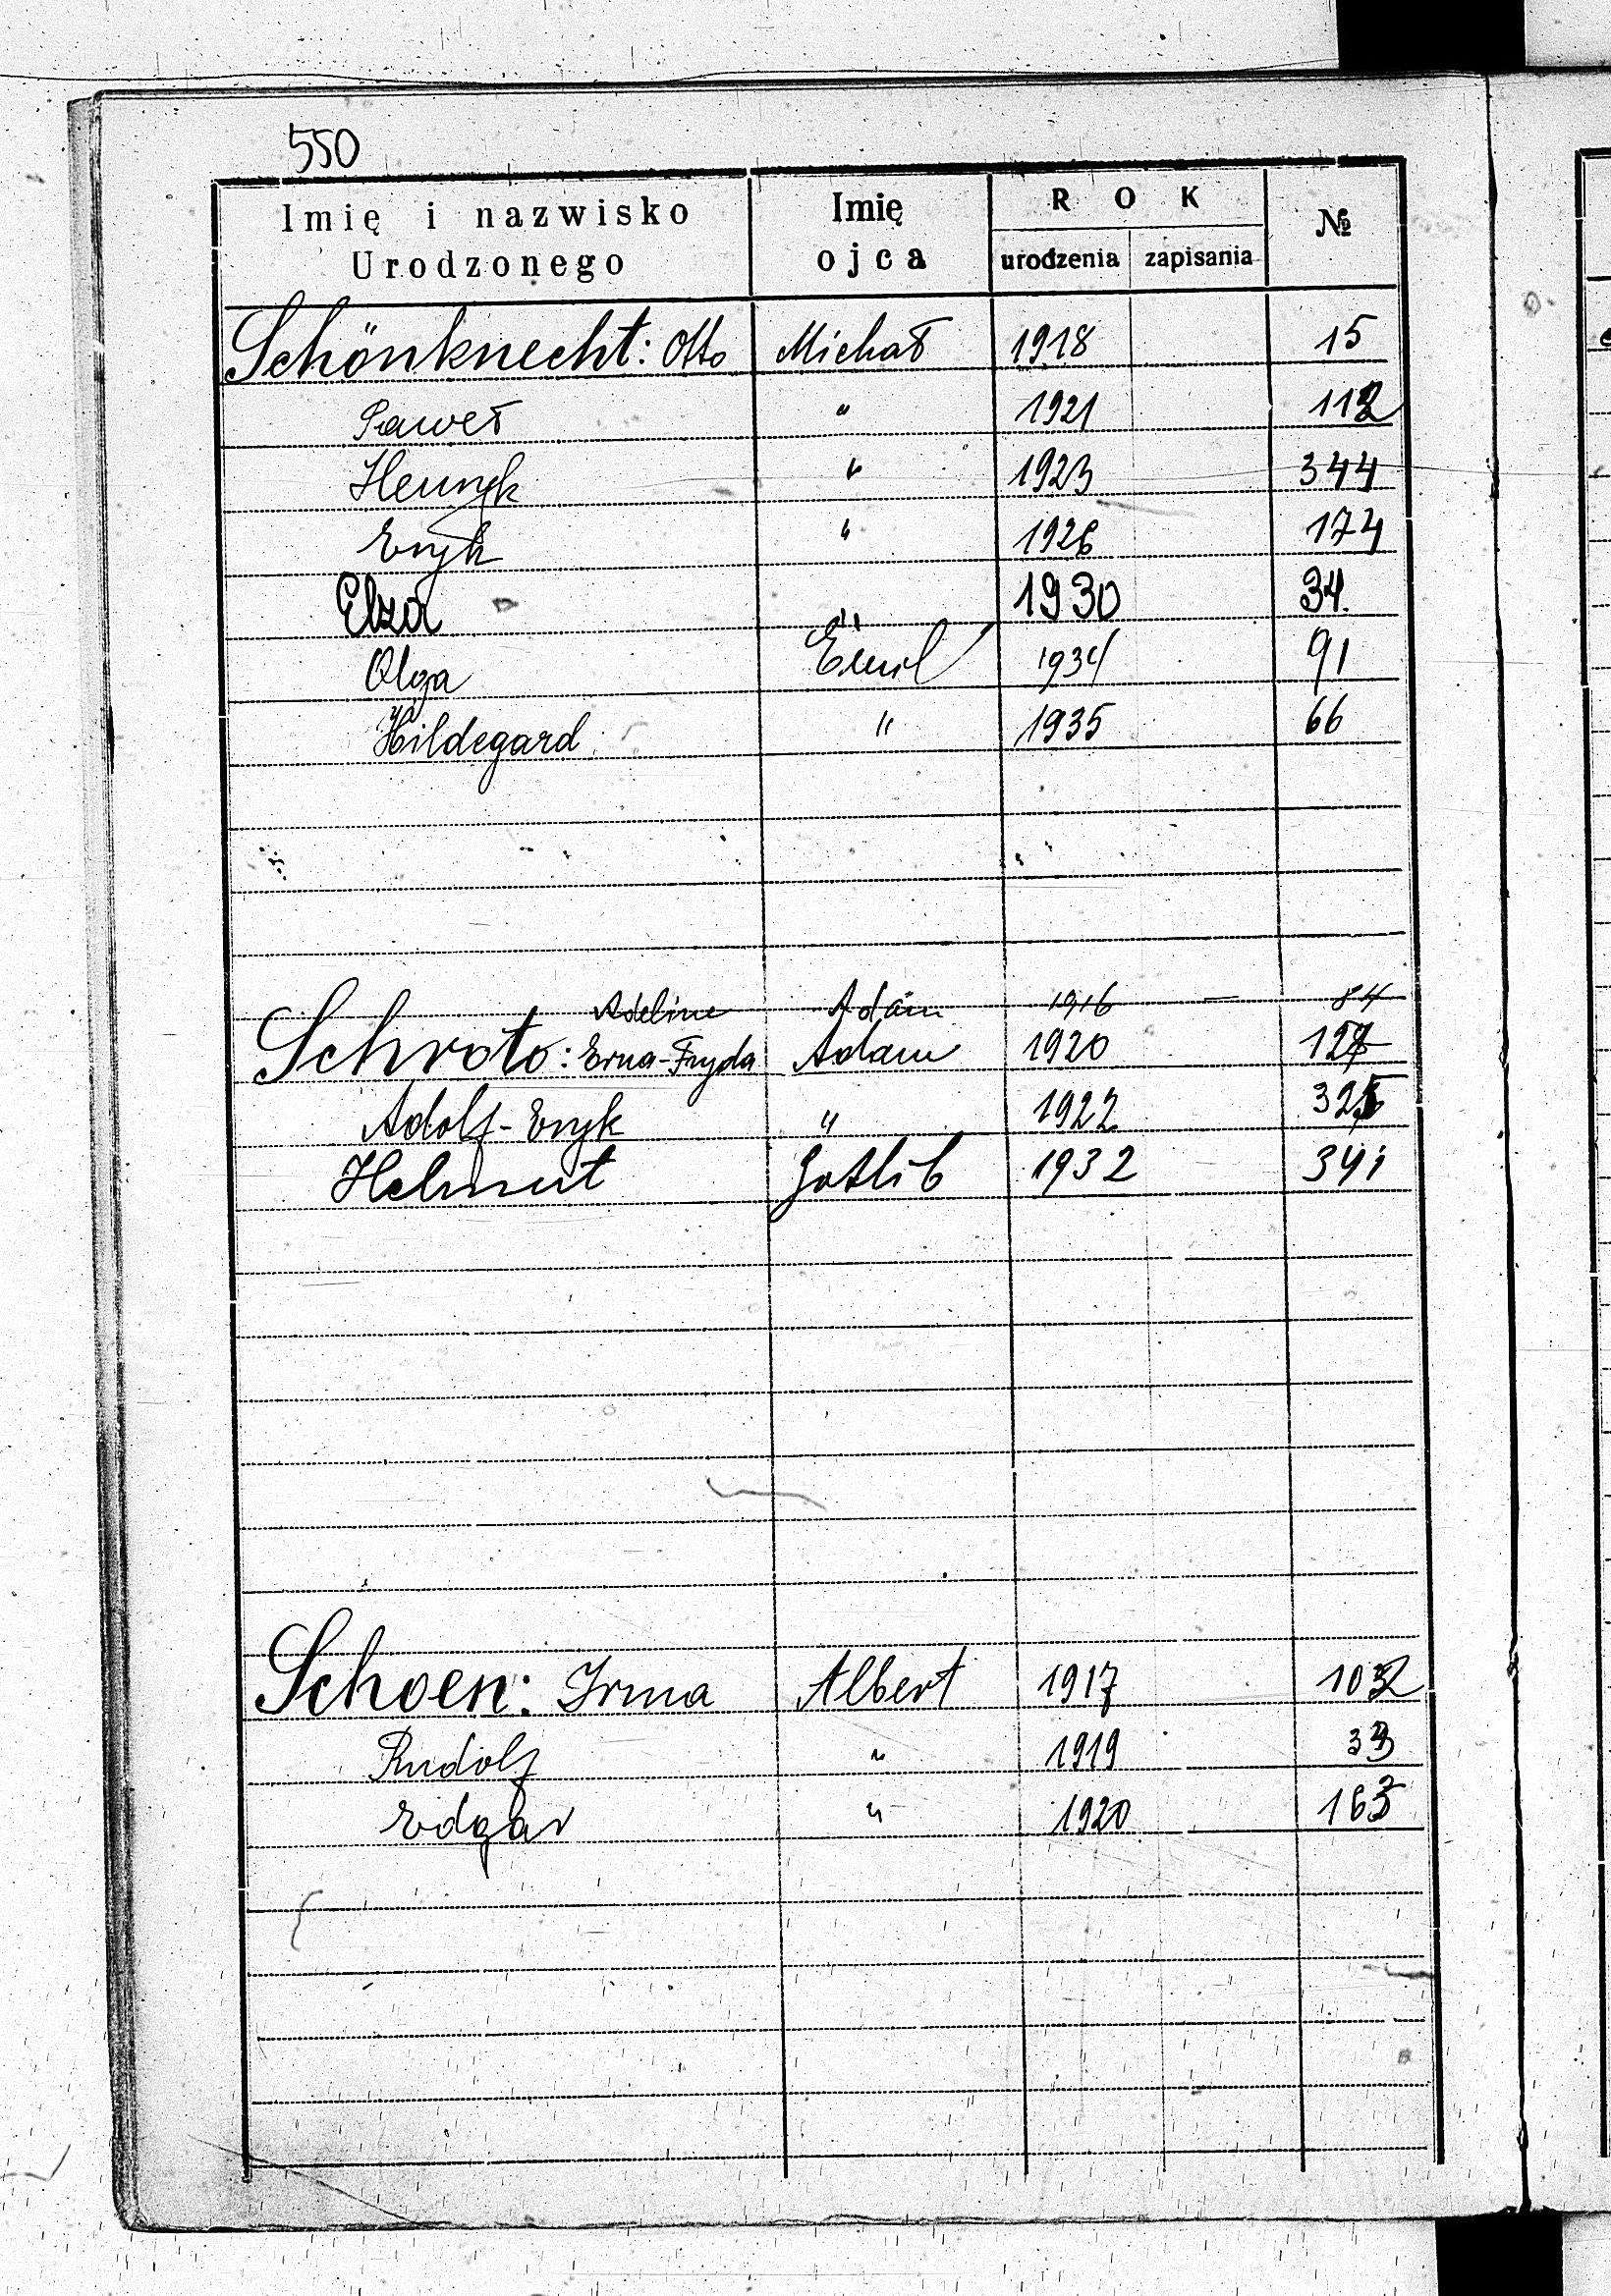 550
Imię i nazwisko Urodzonego | Imię ojca | ROK urodzenia | zapisania | №
Schönknecht: Otto | Michał | 1918 | 15
Paweł | " | 1921 | 112
Henryk | " | 1923 | 344
Eryk | " | 1926 | 174
Elza | " | 1930 | 34.
Olga | Emil | 1934 | 91
Hildegard | " | 1935 | 66
Adeline | Adam | 1916 | — | 84
Schroto: Erna-Fryda | Adam | 1920 | 127
Adolf-Eryk | " | 1922 | 325
Helmut | Gotlib | 1932 | 341
Schoen: Irma | Albert | 1917 | 102
Rudolf | " | 1919 | 33
Edgar | " | 1920 | 163